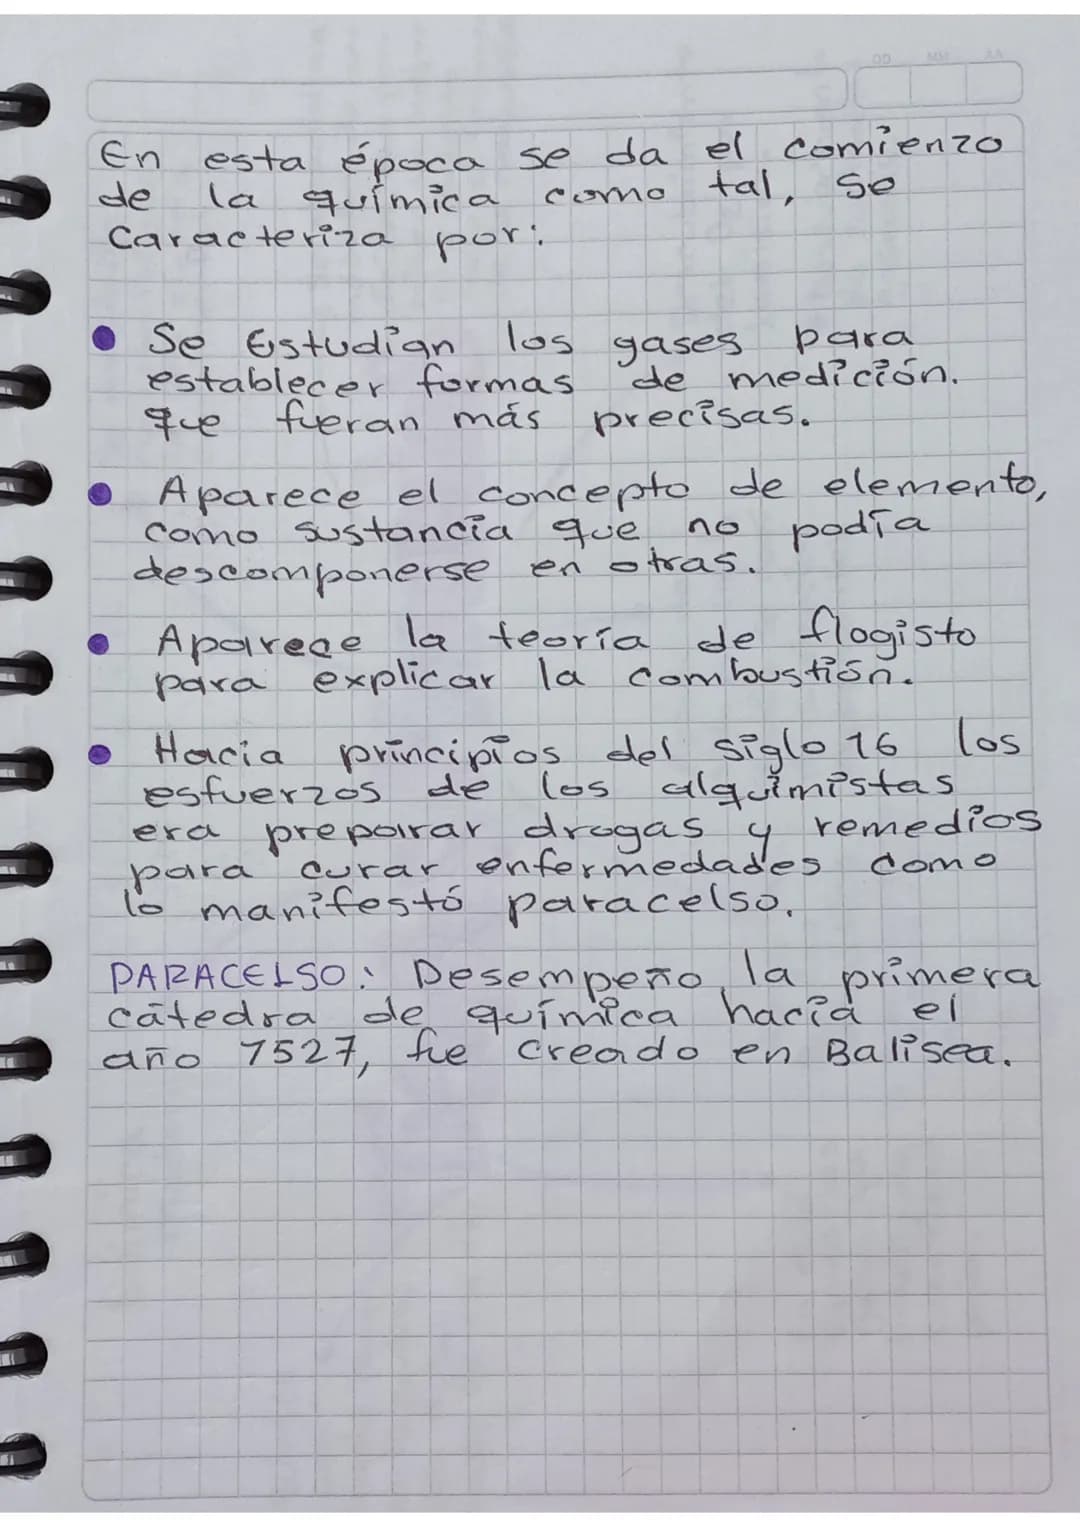 DD MM AA
En esta época se da el comienzo
de la química como tal, se
Caracteriza por:
Se Estudian los gases para
establecer formas de medición.
que fueran más precisas.
Aparece el concepto de elemento,
como sustancia que no podía
descomponerse en otras.
Aparece la teoría de flogisto
para explicar la combustión.
Hacia principios del siglo 16 los
esfuerzos de los alquimistas
era preparar drogas y remedios
para curar enfermedades como
lo manifestó paracelso.
PARACELSO: Desempeño la primera
cátedra de química hacia el
año 1527, fue creado en Balisea.